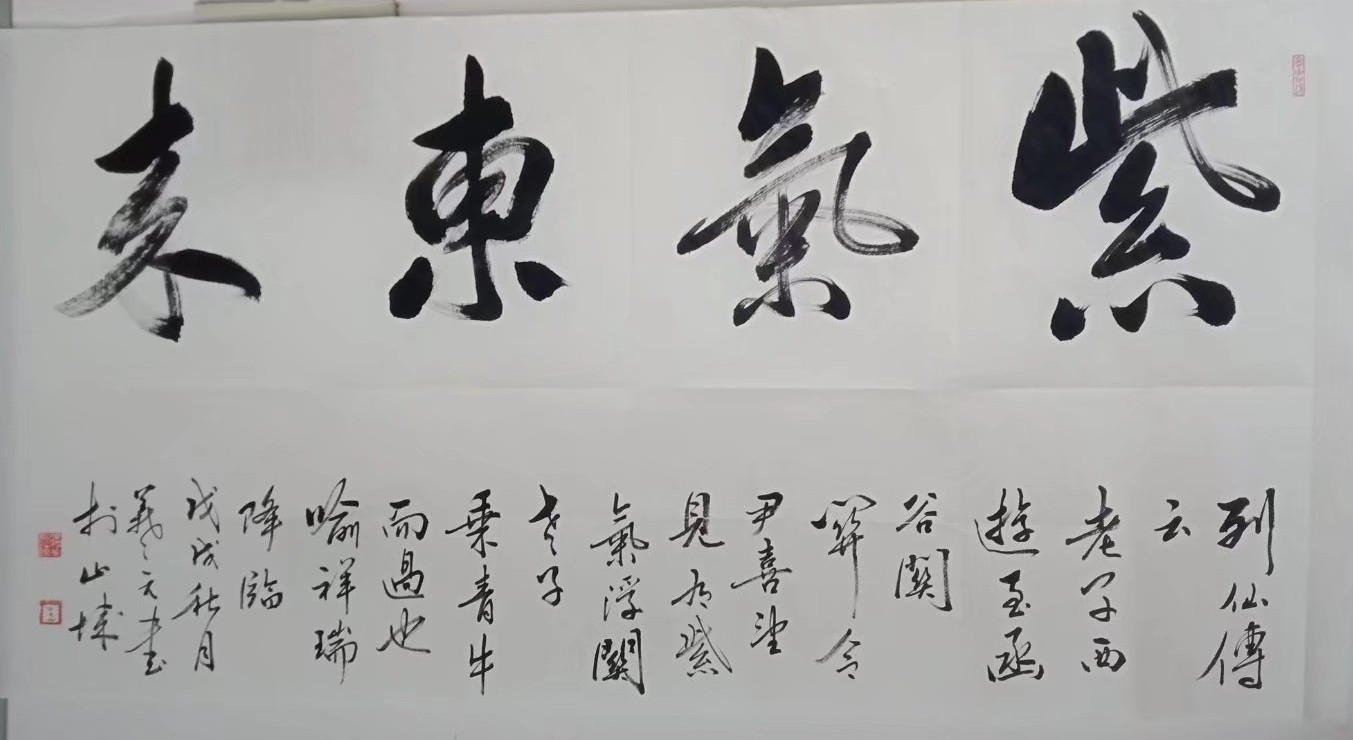 紫氣東来
列仙傳
云
老子西
遊至函
谷關
關令
尹喜望
見有紫
氣浮關
老子
乗青牛
而過也
喻祥瑞
降臨
戊戌秋月
義元書
於山城